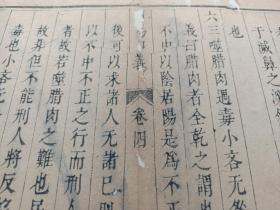 于滅鼻之深
也
六三噬腊肉遇毒小吝无
義曰腊肉者全乾之謂也
不中以陰居陽是爲不正
義 卷四
後可以求諸人无諸已
以不中不正之行而刑人
者故若噬腊肉之難也
故弗但不能刑人將反
毒也小吝无